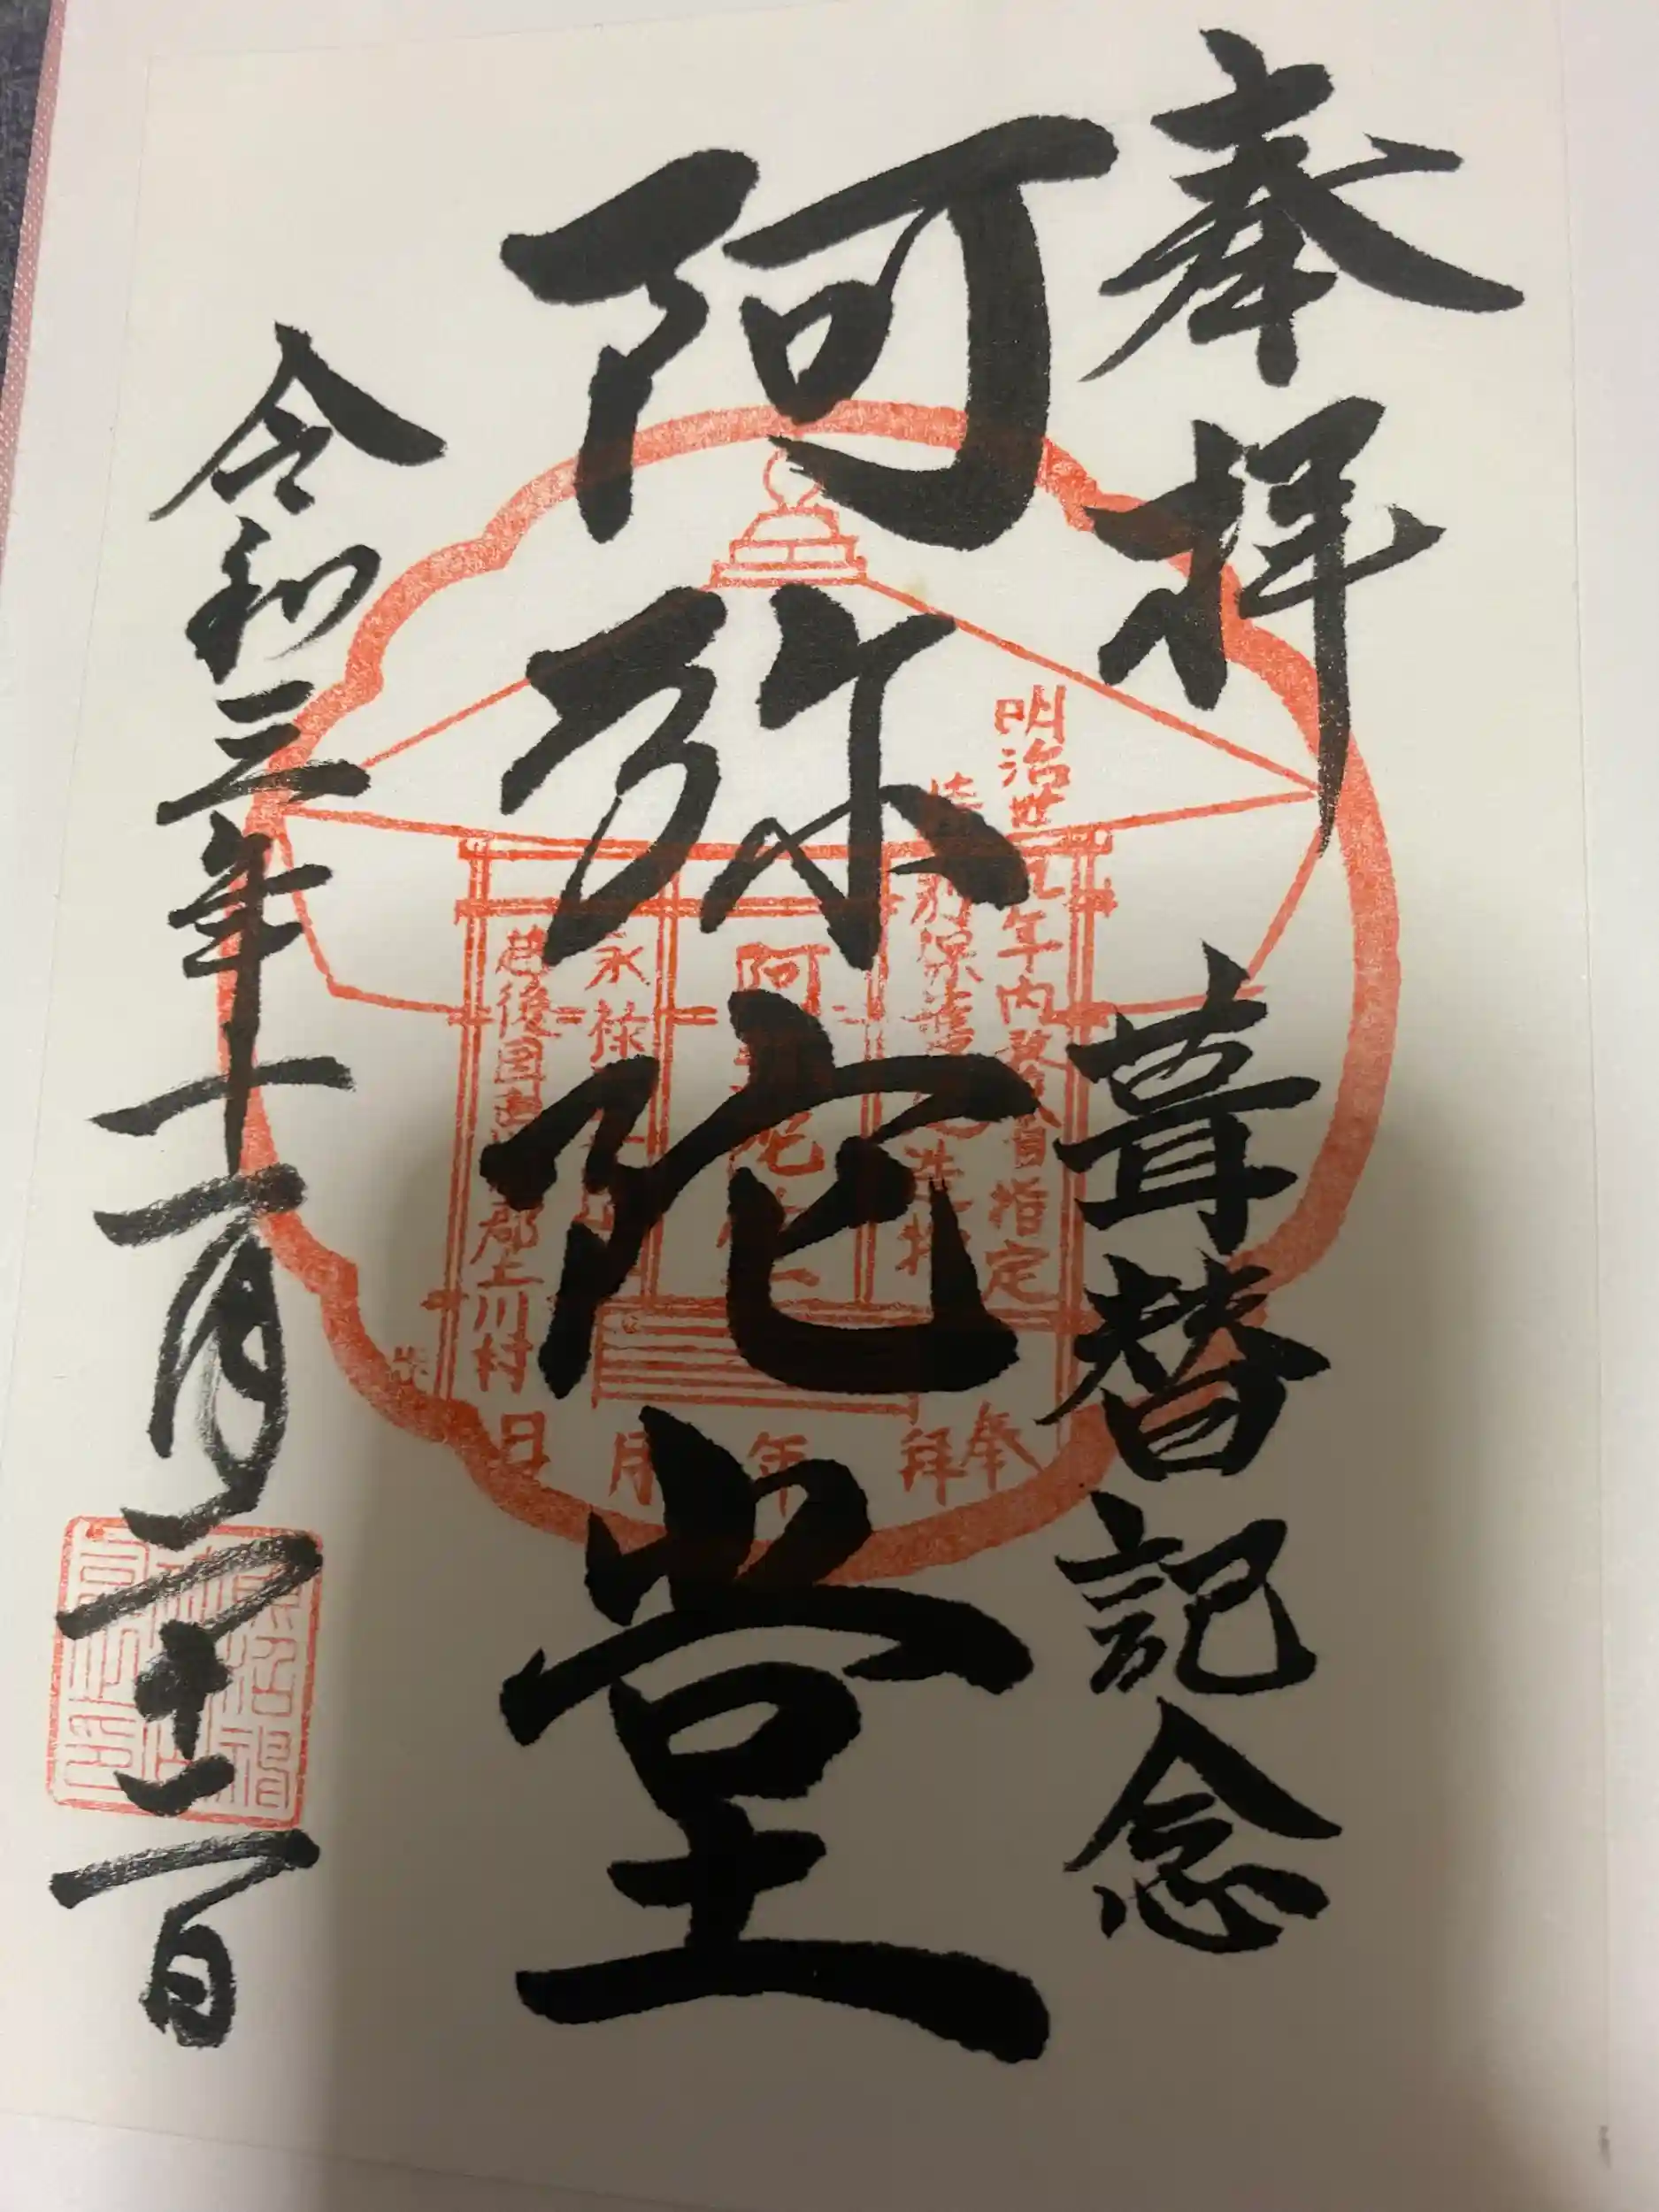 奉拝 葺替記念
阿弥陀堂
令和三年十一月二十二日
年内務省指定
別保護建造物
阿弥陀堂
永禄
後國 郡上川村
奉拝 年 月 日